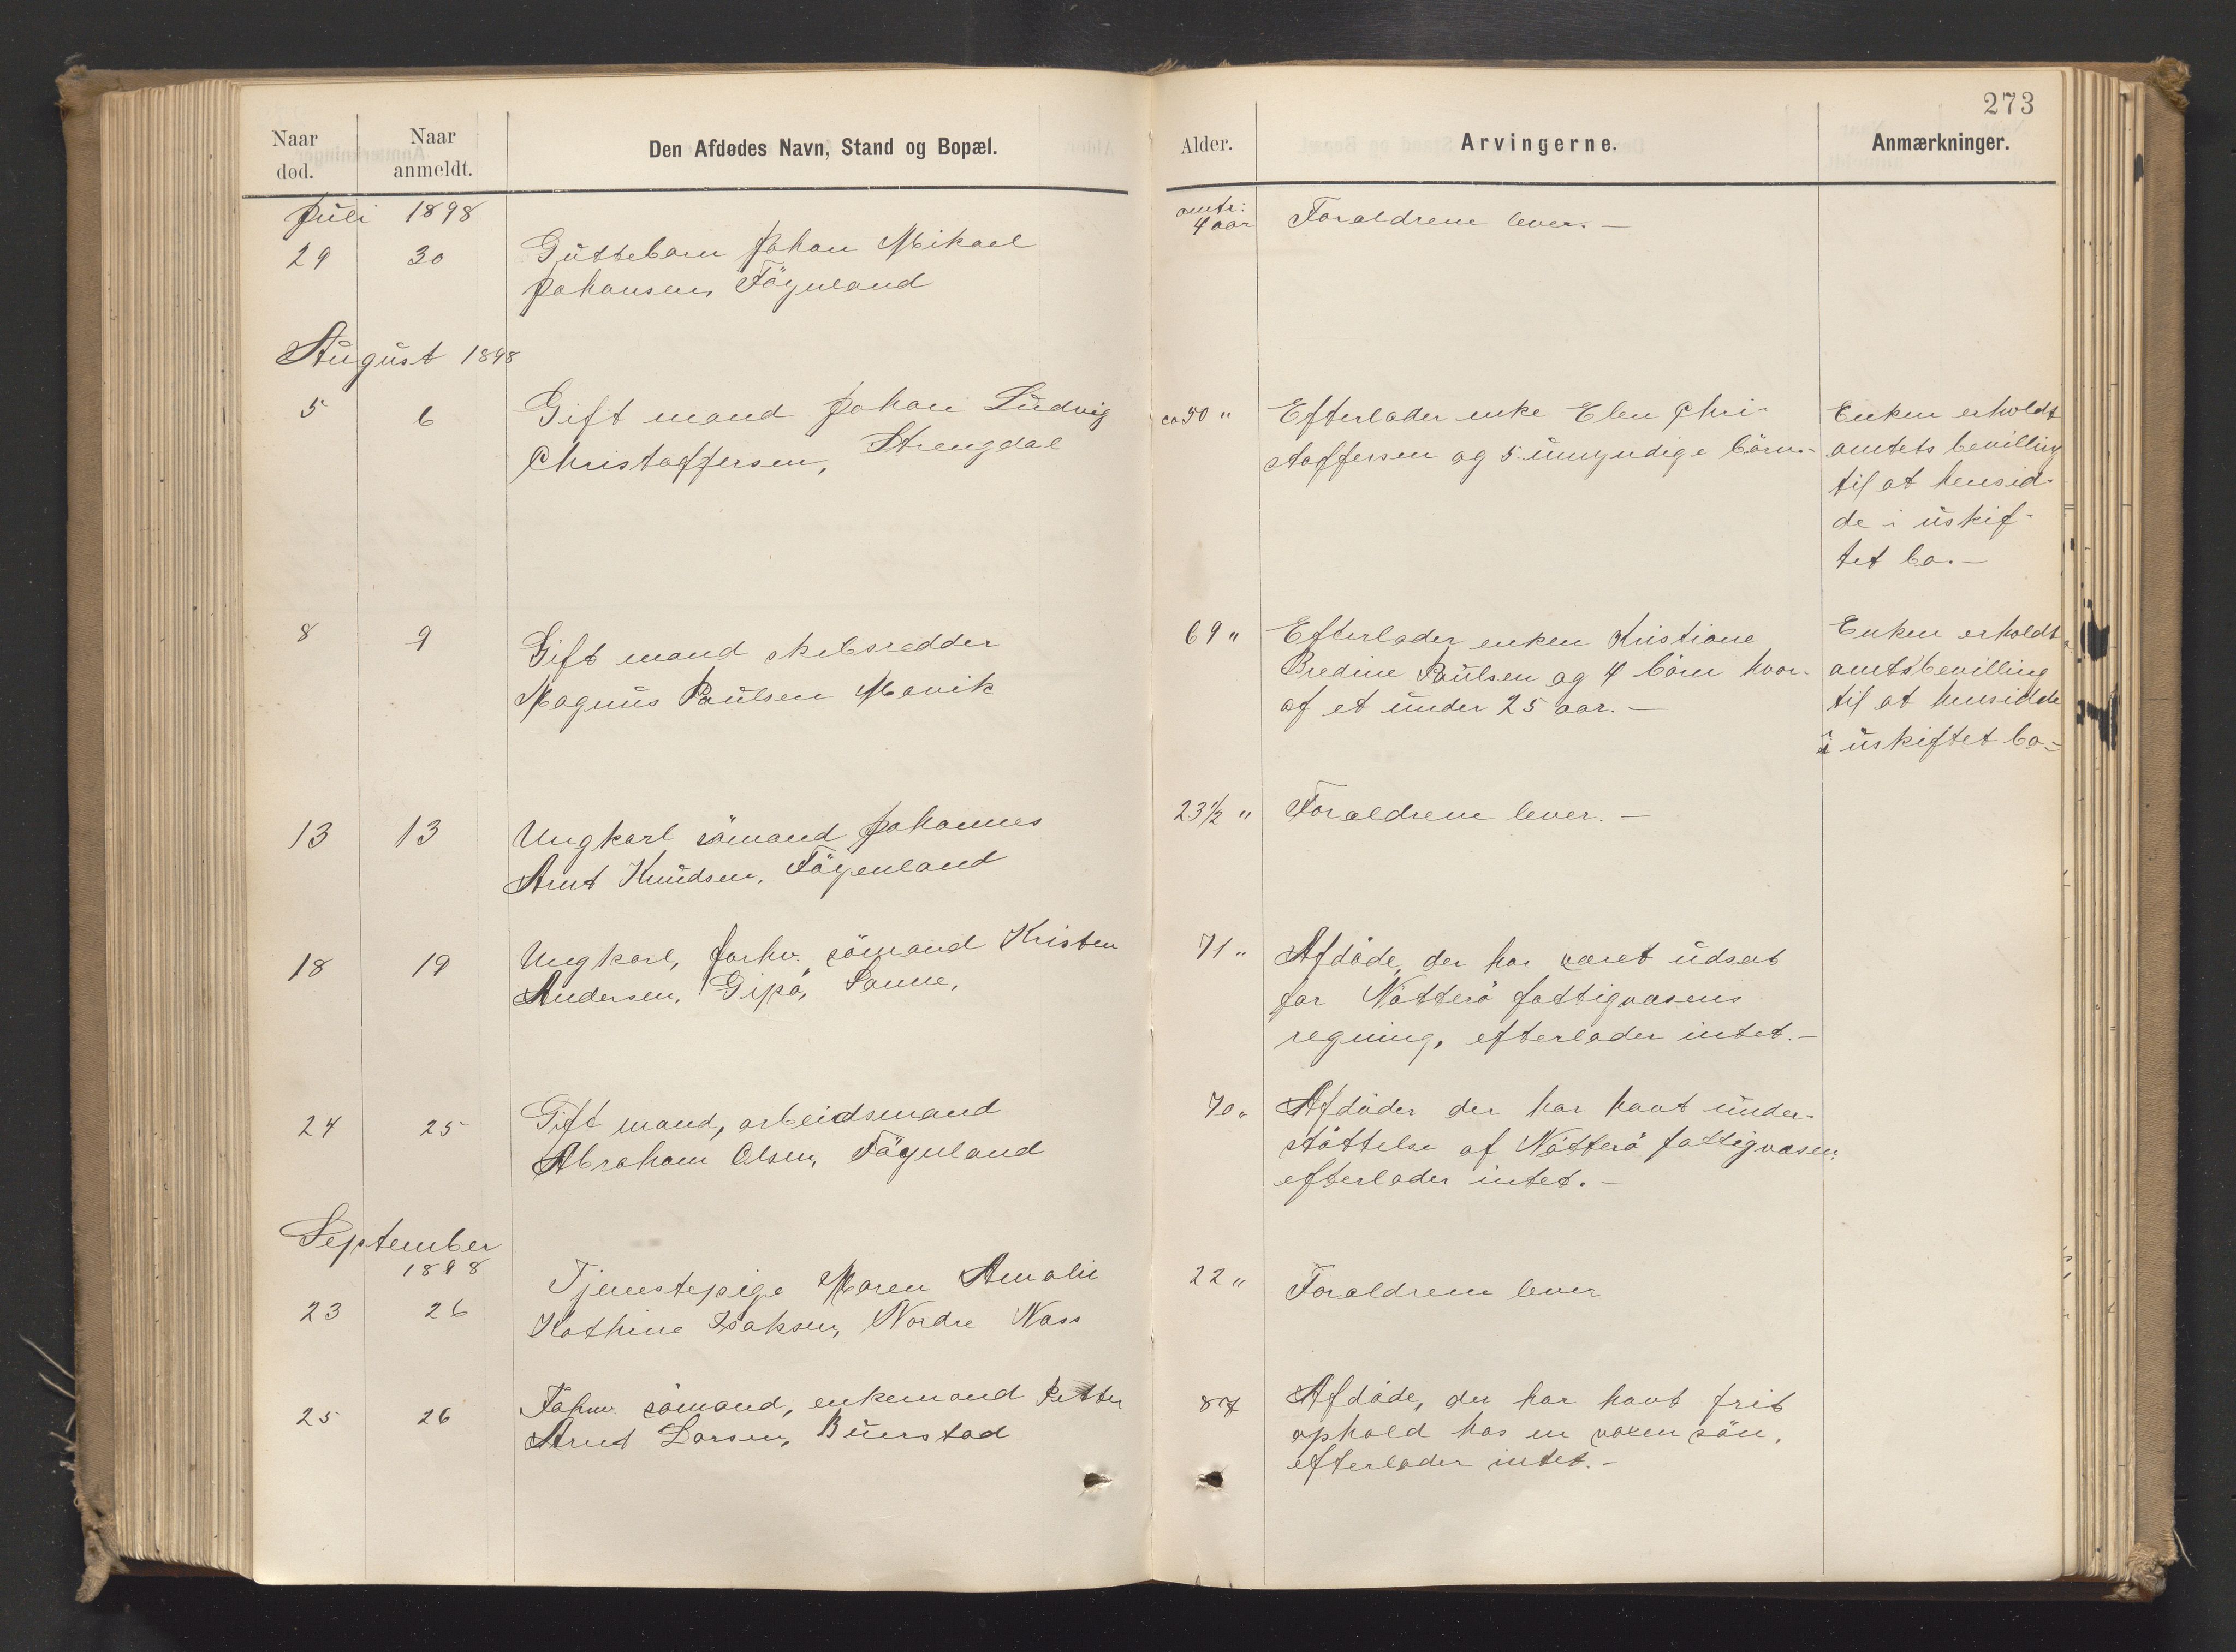 273
Naar død.
Naar anmeldt.
Den Afdødes Navn, Stand og Bopæl.
Alder.
Arvingerne.
Anmærkninger.
Juli 1898
29 30 Guttebarn Johan Mikael
Johansen, Föynland
omtr:
4 aar
Foraldrene lever. —
August 1898
5 6 Gift mand Johan Ludvig
Christoffersen, Strengdal
ca 50 "
Efterlader enke Elen Chri-
stoffersen og 5 umyndige börn.-
Enken erholdt
amtets bevilling
til at hensid-
de i uskif-
tet bo. —
8 9 Gift mand skibsredder
Magnus Paulsen Mavik
69 "
Efterlader enken Kristiane
Bredine Paulsen og 4 börn hvor-
af et under 25 aar. —
Enken erholdt
amtsbevilling
til at hensidde
i uskiftet bo-
13 13 Ungkarl sömand Johannes
Arnt Knudsen, Föyenland
23 1/2 "
Foraldrene lever. —
18 19 Ungkarl, forhv. sömand Kristen
Andersen, Gipö, Sanne,
71 "
Afdöde, der har varet udsat
for Nötterö fattigvasens
regning, efterlader intet. —
24 25 Gift mand, arbeidsmand
Abraham Olsen, Föynland
70 "
Afdöder der har havt under-
stöttelse af Nötterö fattigvasen
efterlader intet. —
September
1898
23 26 Tjenestepige Maren Amalie
Kathine Isaksen, Nordre Nass
22 "
Foraldrene lever
25 26 Fohnv. sömand, enkemand Petter
Arnt Larsen, Buerstad
87
Afdöde, der har havt frit
ophold hos en voxen sön,
efterlader intet. —